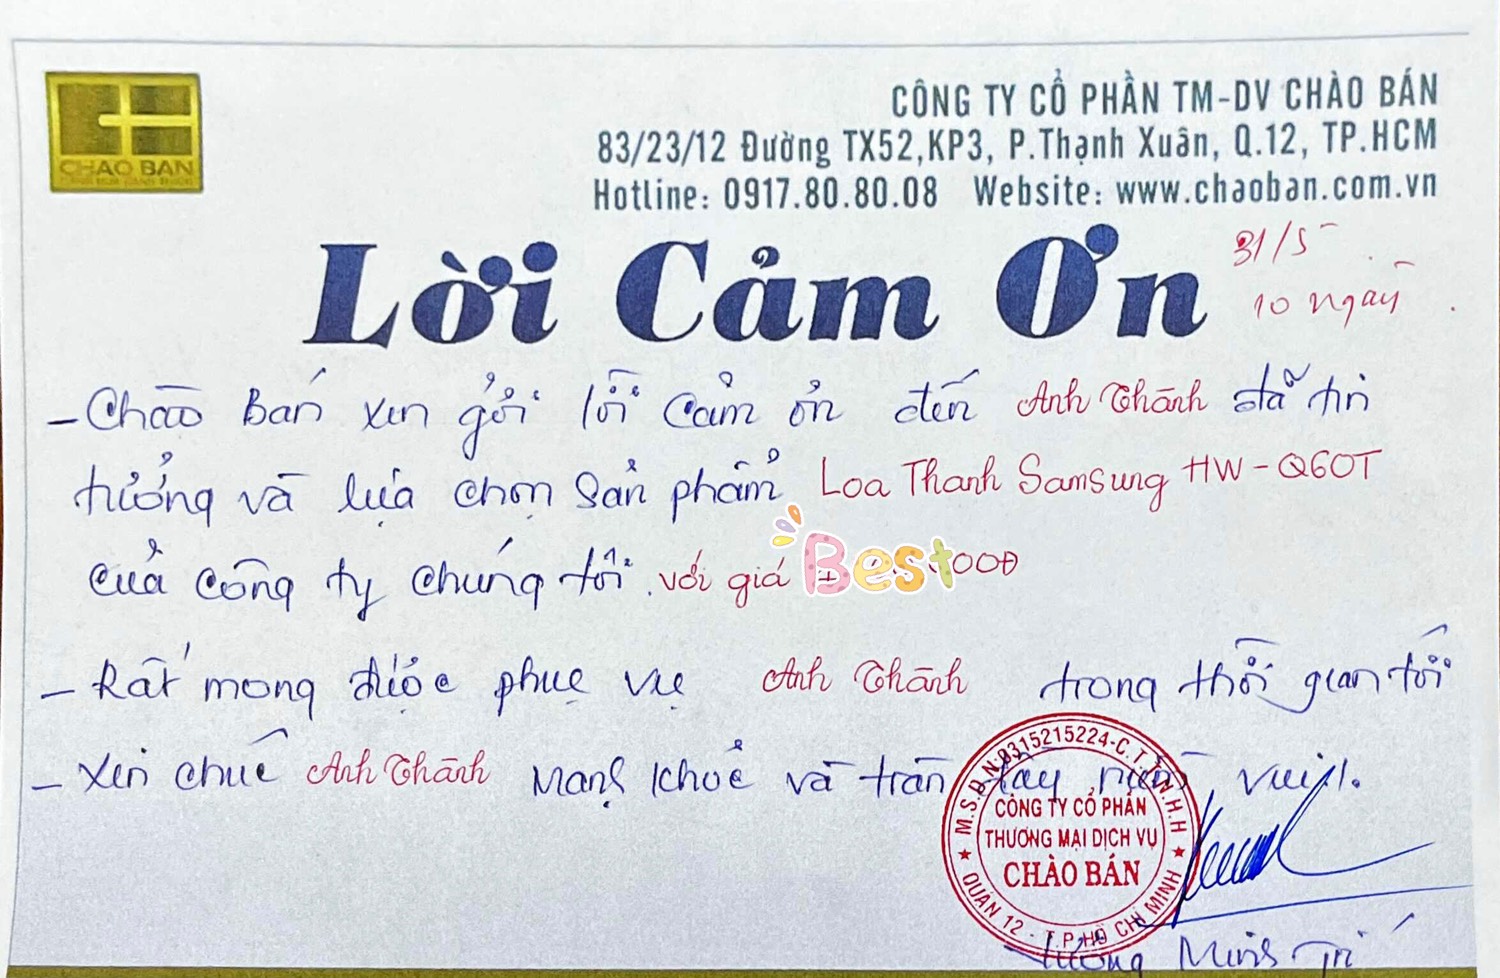 CHAO BAN
CÔNG TY CỔ PHẦN TM-DV CHÀO BÁN
83/23/12 Đường TX52,KP3, P.Thạnh Xuân, Q.12, TP.HCM
Hotline: 0917.80.80.08 Website: www.chaoban.com.vn
Lời Cảm Ơn
31/5
10 ngày
- Chào Bán xin gởi lời cảm ơn đến Anh Thành đã tin
tưởng và lựa chọn sản phẩm Loa Thanh Samsung HW-Q60T
của công ty chúng tôi. với giá Best 000Đ
- Rất mong được phục vụ Anh Thành trong thời gian tới
- Xin chúc Anh Thành mạnh khoẻ và tràn đầy niềm vui./.
M.S.D.N:0315215224-C.T.T.N.H.H
CÔNG TY CỔ PHẦN
THƯƠNG MẠI DỊCH VỤ
CHÀO BÁN
QUẬN 12 - T.P HỒ CHÍ MINH
Minh Trí